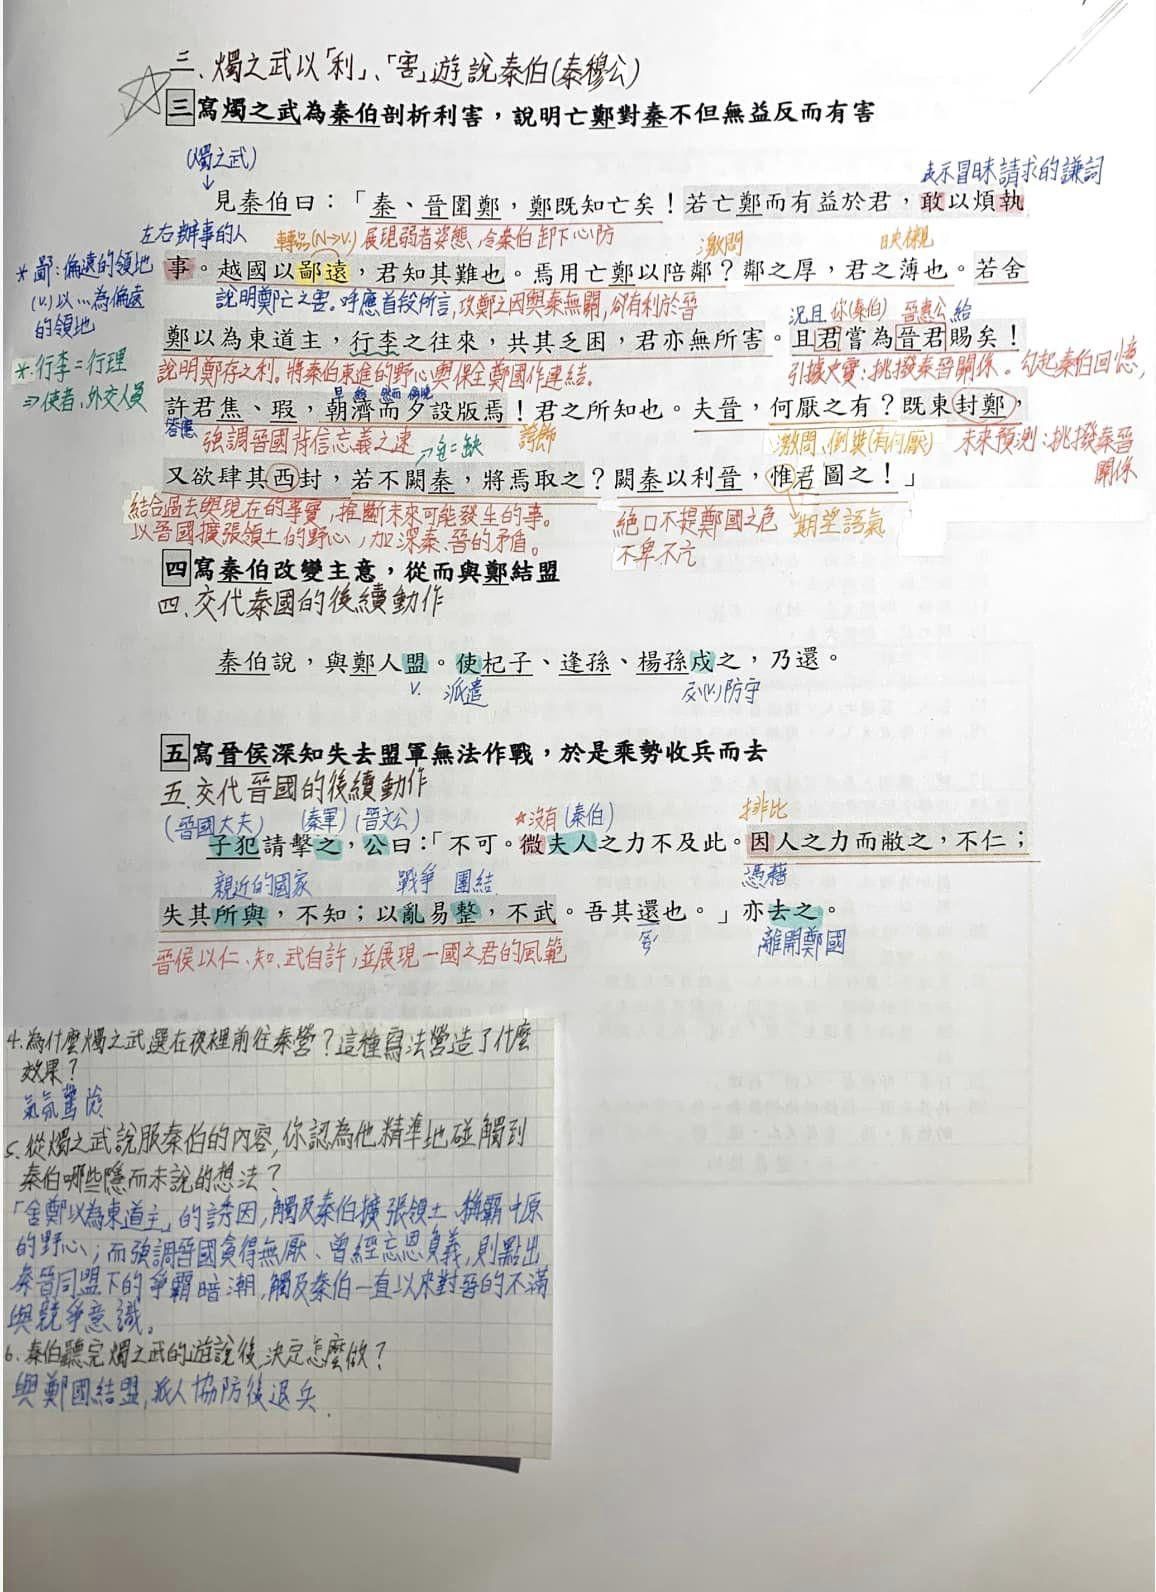 三、燭之武以「利」、「害」遊說秦伯(秦穆公)
三寫燭之武為秦伯剖析利害，說明亡鄭對秦不但無益反而有害
(燭之武)
表示冒昧請求的謙詞
見秦伯曰：「秦、晉圍鄭，鄭既知亡矣！若亡鄭而有益於君，敢以煩執
左右辦事的人
轉品(N→V.)
展現弱者姿態、冷秦伯卸下心防
激問
映襯
＊鄙：偏遠的領地
(V.)以…為偏遠
的領地
事。越國以鄙遠，君知其難也。焉用亡鄭以陪鄰？鄰之厚，君之薄也。若舍
說明鄭亡之害。呼應首段所言，攻鄭之因與秦無關，卻有利於晉
況且 你(秦伯) 晉惠公 給
鄭以為東道主，行李之往來，共其乏困，君亦無所害。且君嘗為晉君賜矣！
＊行李=行理
⇒使者、外交人員
說明鄭存之利。將秦伯東進的野心與保全鄭國作連結。
引據史實：挑撥秦晉關係。勾起秦伯回憶，
早晨 然而 傍晚
許君焦、瑕，朝濟而夕設版焉！君之所知也。夫晉，何厭之有？既東封鄭，
答應
強調晉國背信忘義之速
誇飾
激問、倒裝(有何厭)
未來預測：挑撥秦晉
關係
又欲肆其西封，若不闕秦，將焉取之？闕秦以利晉，惟君圖之！」
結合過去與現在的事實，推斷未來可能發生的事。
以晉國擴張領土的野心，加深秦、晉的矛盾。
絕口不提鄭國之危
不卑不亢
期望語氣
四寫秦伯改變主意，從而與鄭結盟
四、交代秦國的後續動作
秦伯說，與鄭人盟。使杞子、逢孫、楊孫戍之，乃還。
V.
派遣
(V.)防守
五寫晉侯深知失去盟軍無法作戰，於是乘勢收兵而去
五、交代晉國的後續動作
(晉國大夫)
(秦軍)
(晉文公)
＊沒有
(秦伯)
排比
子犯請擊之，公曰：「不可。微夫人之力不及此。因人之力而敝之，不仁；
親近的國家
戰爭
團結
憑藉
失其所與，不知；以亂易整，不武。吾其還也。」亦去之。
晉侯以仁、知、武自許，並展現一國之君的風範
離開鄭國
4.為什麼燭之武選在夜裡前往秦營？這種寫法營造了什麼
效果？
氣氛驚險
5.從燭之武說服秦伯的內容，你認為他精準地碰觸到
秦伯哪些隱而未說的想法？
「舍鄭以為東道主」的誘因，觸及秦伯擴張領土、稱霸中原
的野心；而強調晉國貪得無厭、曾經忘恩負義，則點出
秦晉同盟下的爭霸暗潮，觸及秦伯一直以來對晉的不滿
與競爭意識。
6.秦伯聽完燭之武的遊說後，決定怎麼做？
與鄭國結盟，派人協防後退兵.